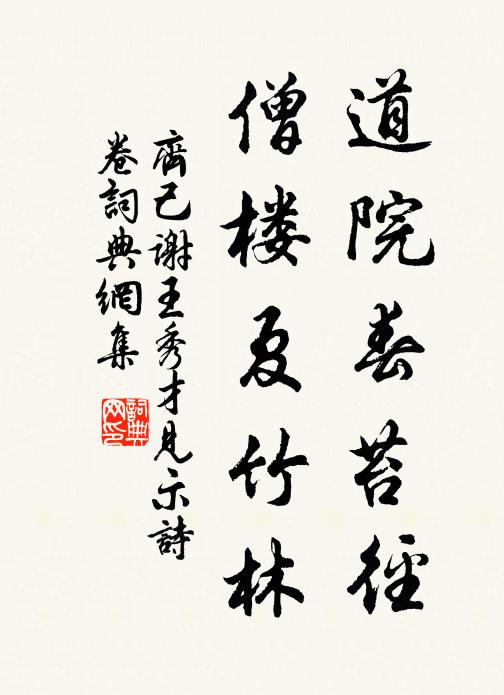 道院春苔徑
僧楼夏竹林
齊己謝王秀才見示詩
卷詞典網集
詞典网印